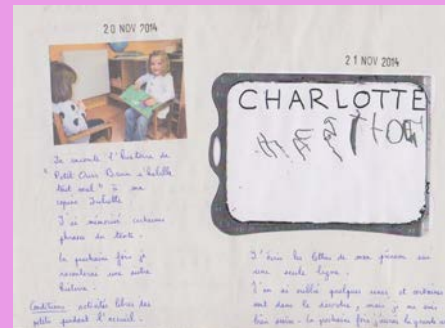 20 NOV 2014
Je raconte l'histoire de
"Petit Ours Brun s'habille
tout seul" à ma
copine Juliette
J'ai mémorisé certaines
phrases du texte.
La prochaine fois je
raconterai une autre
histoire.
Conditions activités libres des
petits pendant l'accueil.
21 NOV 2014
CHARLOTTE
J'écris les lettres de mon prénom sur
une seule ligne.
J'en ai oublié quelques unes et certaines
sont dans le désordre, mais je me suis
bien
La prochaine fois j'écrirai